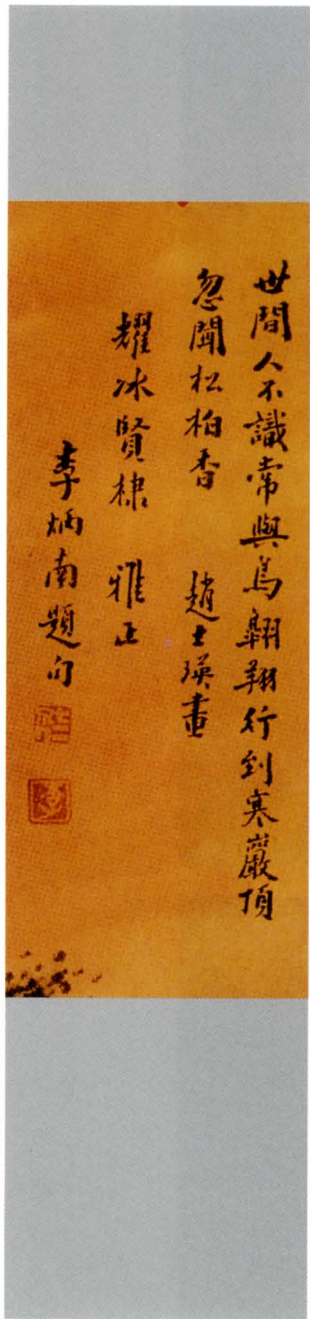 世間人不識常與鳥翺翔行到寒巖頂
忽聞松柏香　趙士瑛畫
耀冰賢棣　雅正
李炳南題句